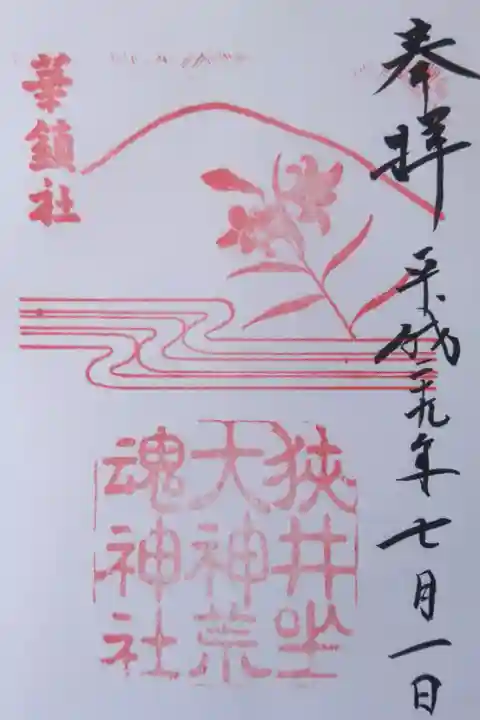 奉拝
平成二十九年七月一日
華鎮社
狭井坐
大神荒
魂神社